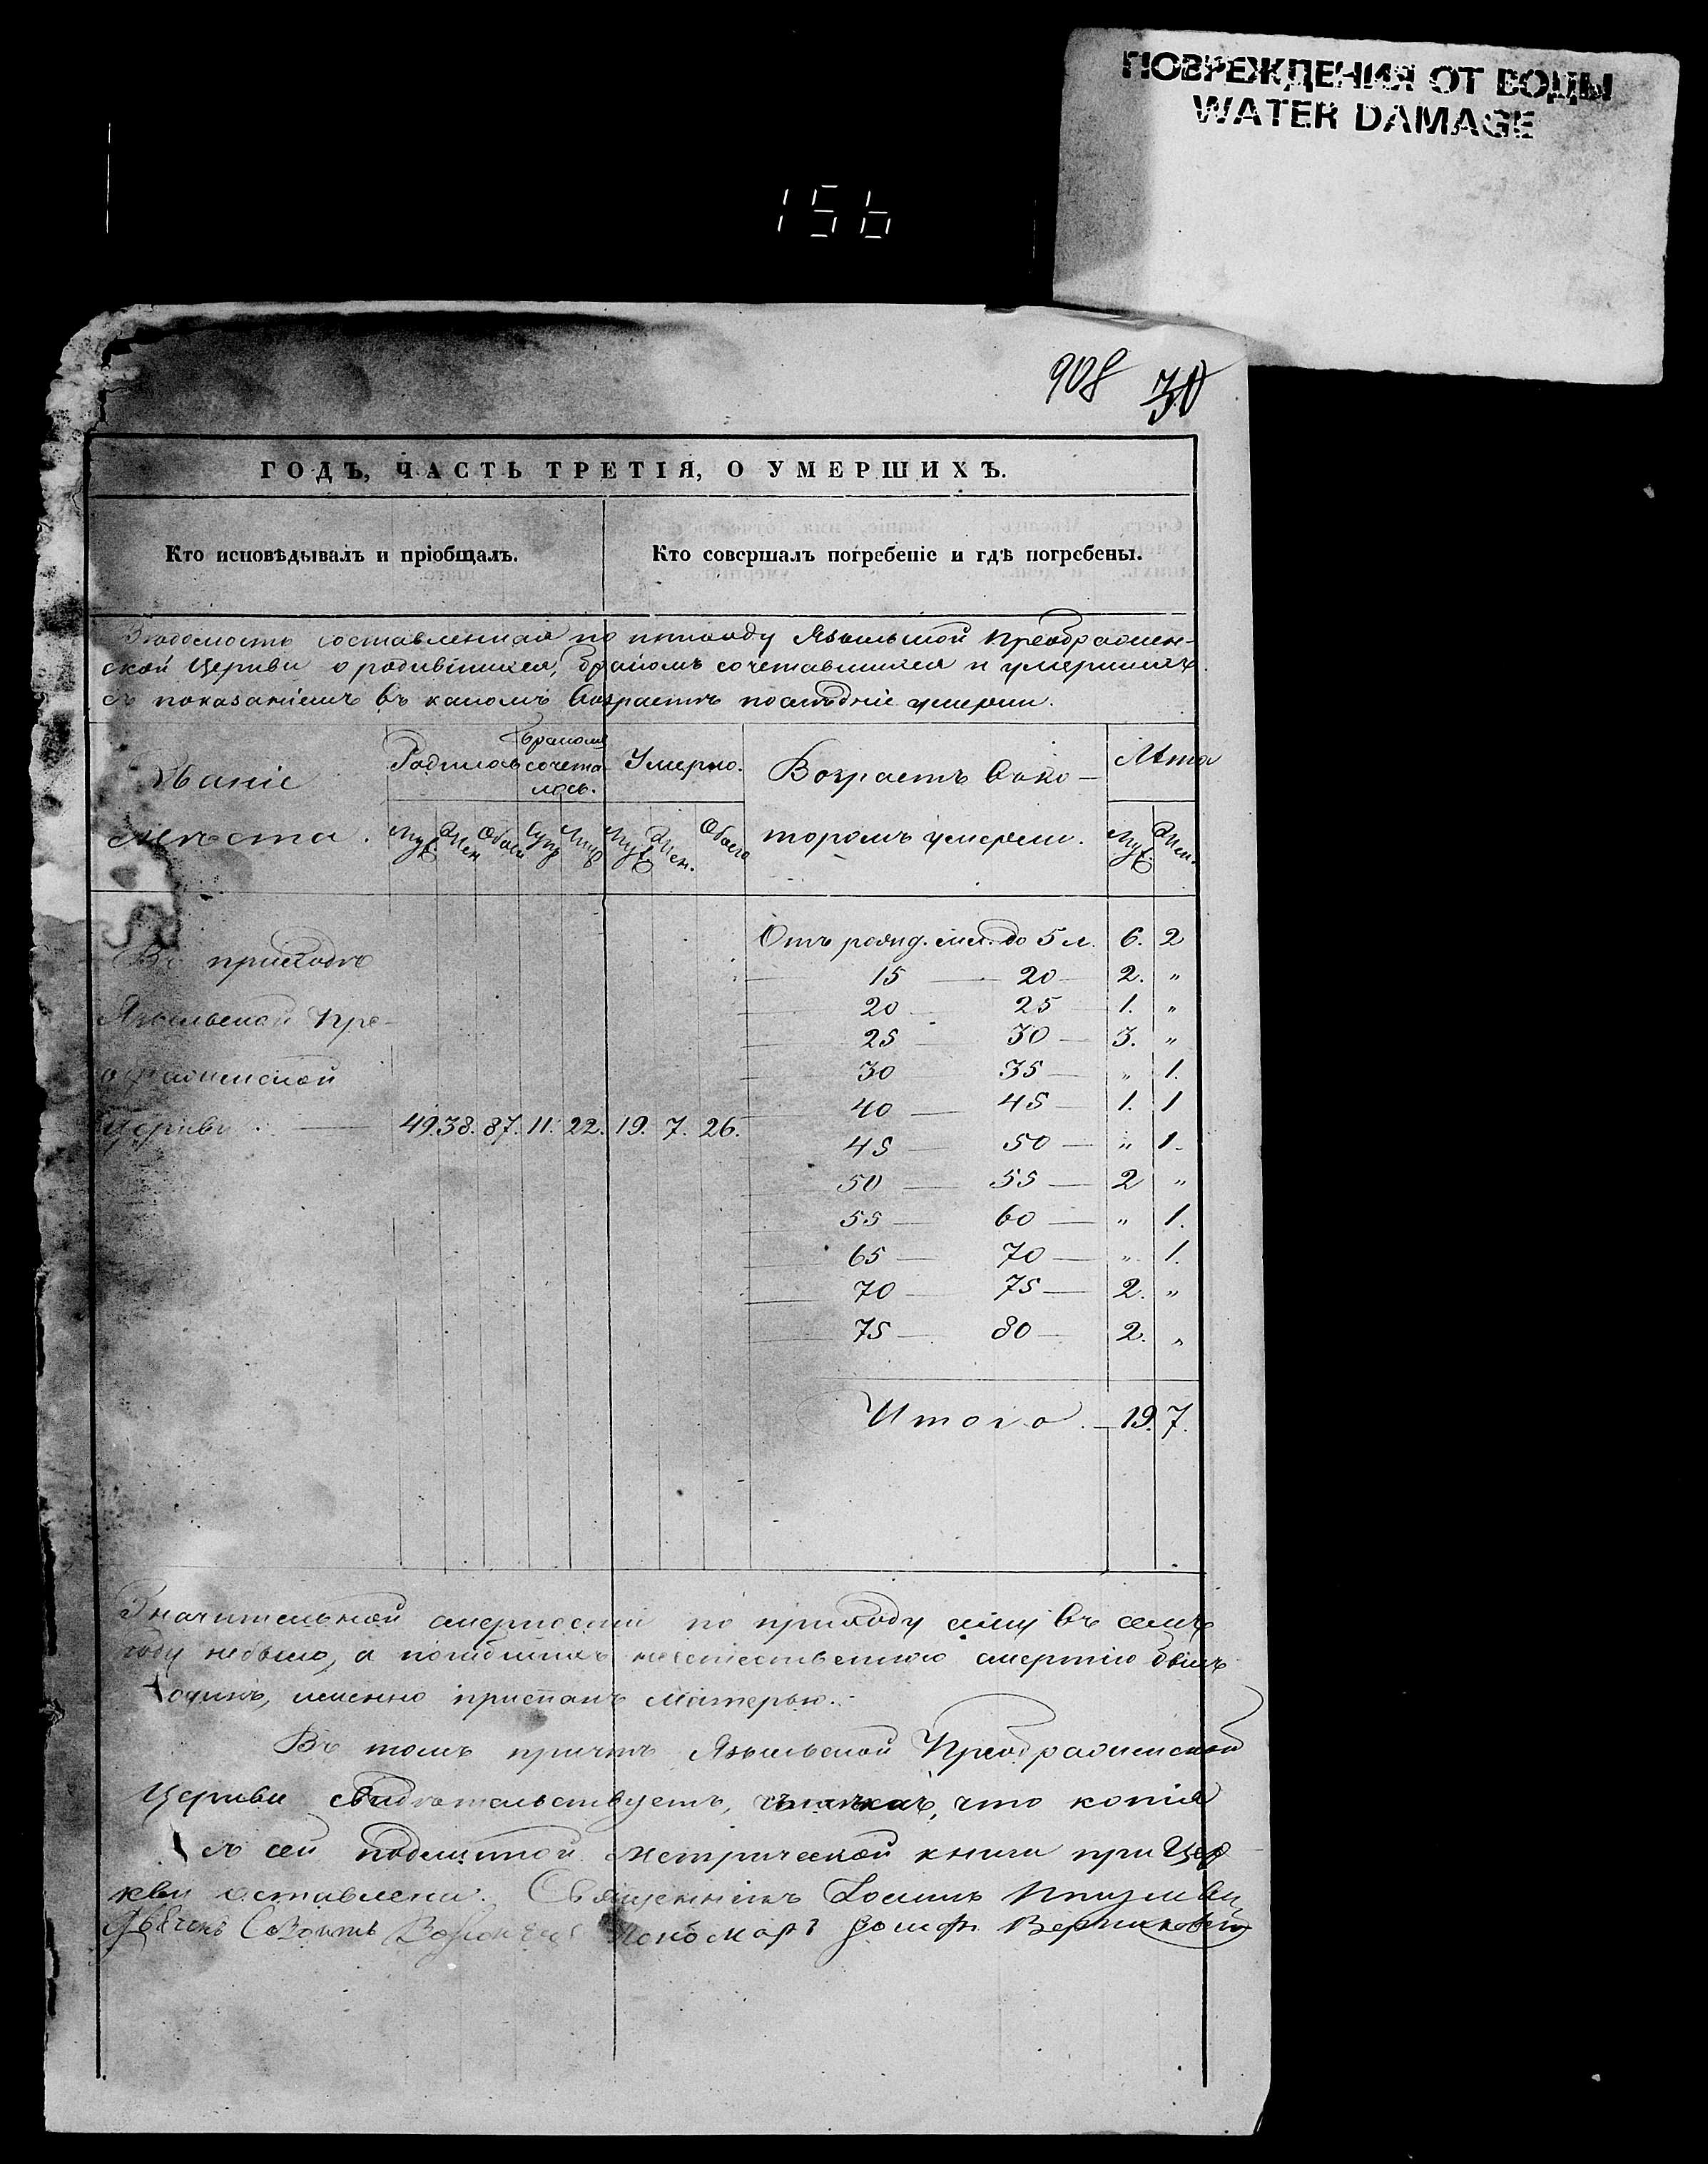 ПОВРЕЖДЕНИЯ ОТ ВОДЫ
WATER DAMAGE
156
908 70
ГОДЪ, ЧАСТЬ ТРЕТІЯ, О УМЕРШИХЪ.
Кто исповѣдывалъ и пріобщалъ. Кто совершалъ погребеніе и гдѣ погребены.
Вѣдомость составленная по приходу Языльской Преображен-
ской Церкви о родившихся, бракомъ сочетавшихся и умершихъ
съ показаніемъ въ какомъ возрастѣ послѣдніе умерли.
Званіе мѣста. Родилось Бракомъ сочета-лось. Умерло. Возрастъ въ ко-торомъ умерли. Лѣта
Муж. Жен. Обоего Муж. Жен. Обоего Муж. Жен.
Отъ рожд. мл. до 5 л. 6. 2
Въ приходѣ
15 — 20 — 2. "
Языльской Пре-
20 — 25 — 1. "
25 — 30 — 3. "
ображенской
30 — 35 — " 1.
40 — 45 — 1. 1
Церкви — 49. 38. 87. 11. 22. 19. 7. 26.
45 — 50 — " 1.
50 — 55 — 2 "
55 — 60 — " 1.
65 — 70 — " 1.
70 — 75 — 2. "
75 — 80 — 2. "
Итого — 19. 7.
Значительной смертности по приходу сему въ семъ
году небыло, а погибшихъ неестественною смертію былъ
одинъ, именно приспанъ матерью.
Въ томъ причтъ Языльской Преображенской
Церкви свидѣтельствуетъ, что копія
съ сей подлинной метрической книги при Цер-
кви оставлена. Священникъ
Дьячекъ Пономарь